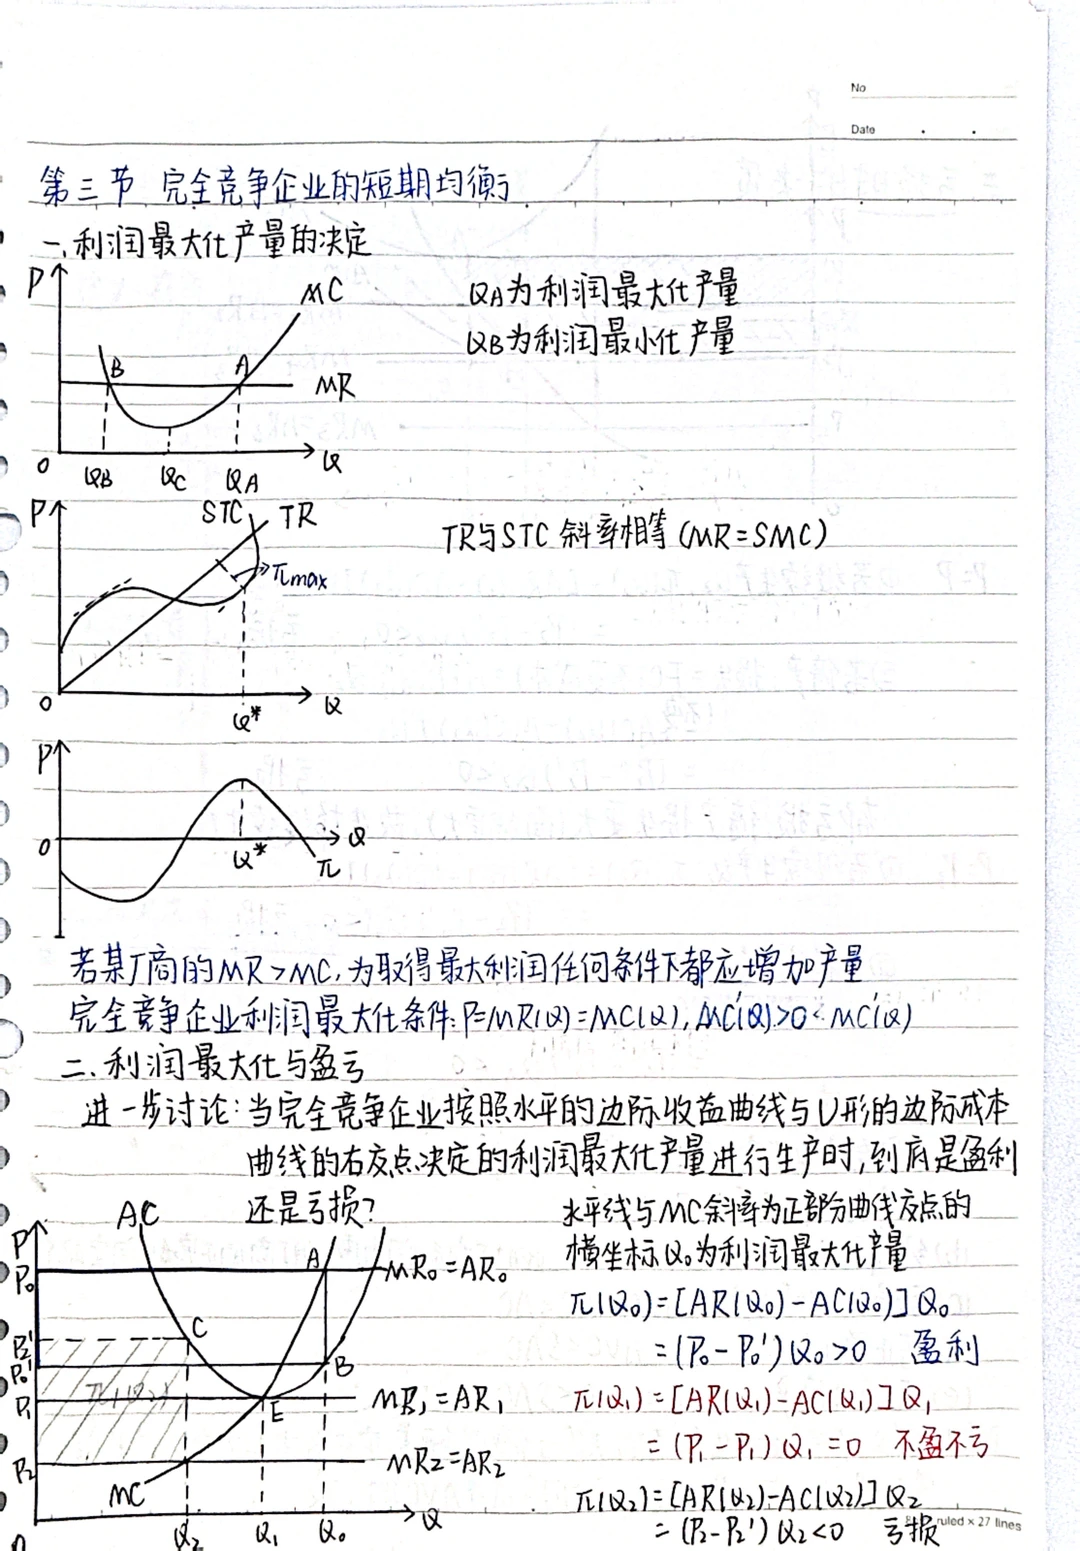 No
Date
第三节 完全竞争企业的短期均衡
一、利润最大化产量的决定
P
MC
QA为利润最大化产量
QB为利润最小化产量
B
A
MR
O
QB
QC
QA
Q
P
STC
TR
TR与STC斜率相等(MR=SMC)
πmax
O
Q*
Q
P
O
Q*
Q
π
若某厂商的MR>MC,为取得最大利润任何条件下都应增加产量
完全竞争企业利润最大化条件:P=MR(Q)=MC(Q),MC'(Q)>0<MC'(Q)
二、利润最大化与盈亏
进一步讨论:当完全竞争企业按照水平的边际收益曲线与U形的边际成本
曲线的右交点决定的利润最大化产量进行生产时,到底是盈利
还是亏损?
水平线与MC斜率为正部分曲线交点的
横坐标Q₀为利润最大化产量
π(Q₀)=[AR(Q₀)-AC(Q₀)]Q₀
=(P₀-P₀')Q₀>0 盈利
π(Q₁)=[AR(Q₁)-AC(Q₁)]Q₁
=(P₁-P₁)Q₁=0 不盈不亏
π(Q₂)=[AR(Q₂)-AC(Q₂)]Q₂
=(P₂-P₂')Q₂<0 亏损
AC
P
P₀
A
MR₀=AR₀
P₂'
C
P₀'
B
π(Q₂)
P₁
E
MR₁=AR₁
P₂
MR₂=AR₂
MC
Q₂
Q₁
Q₀
Q
ruled × 27 lines